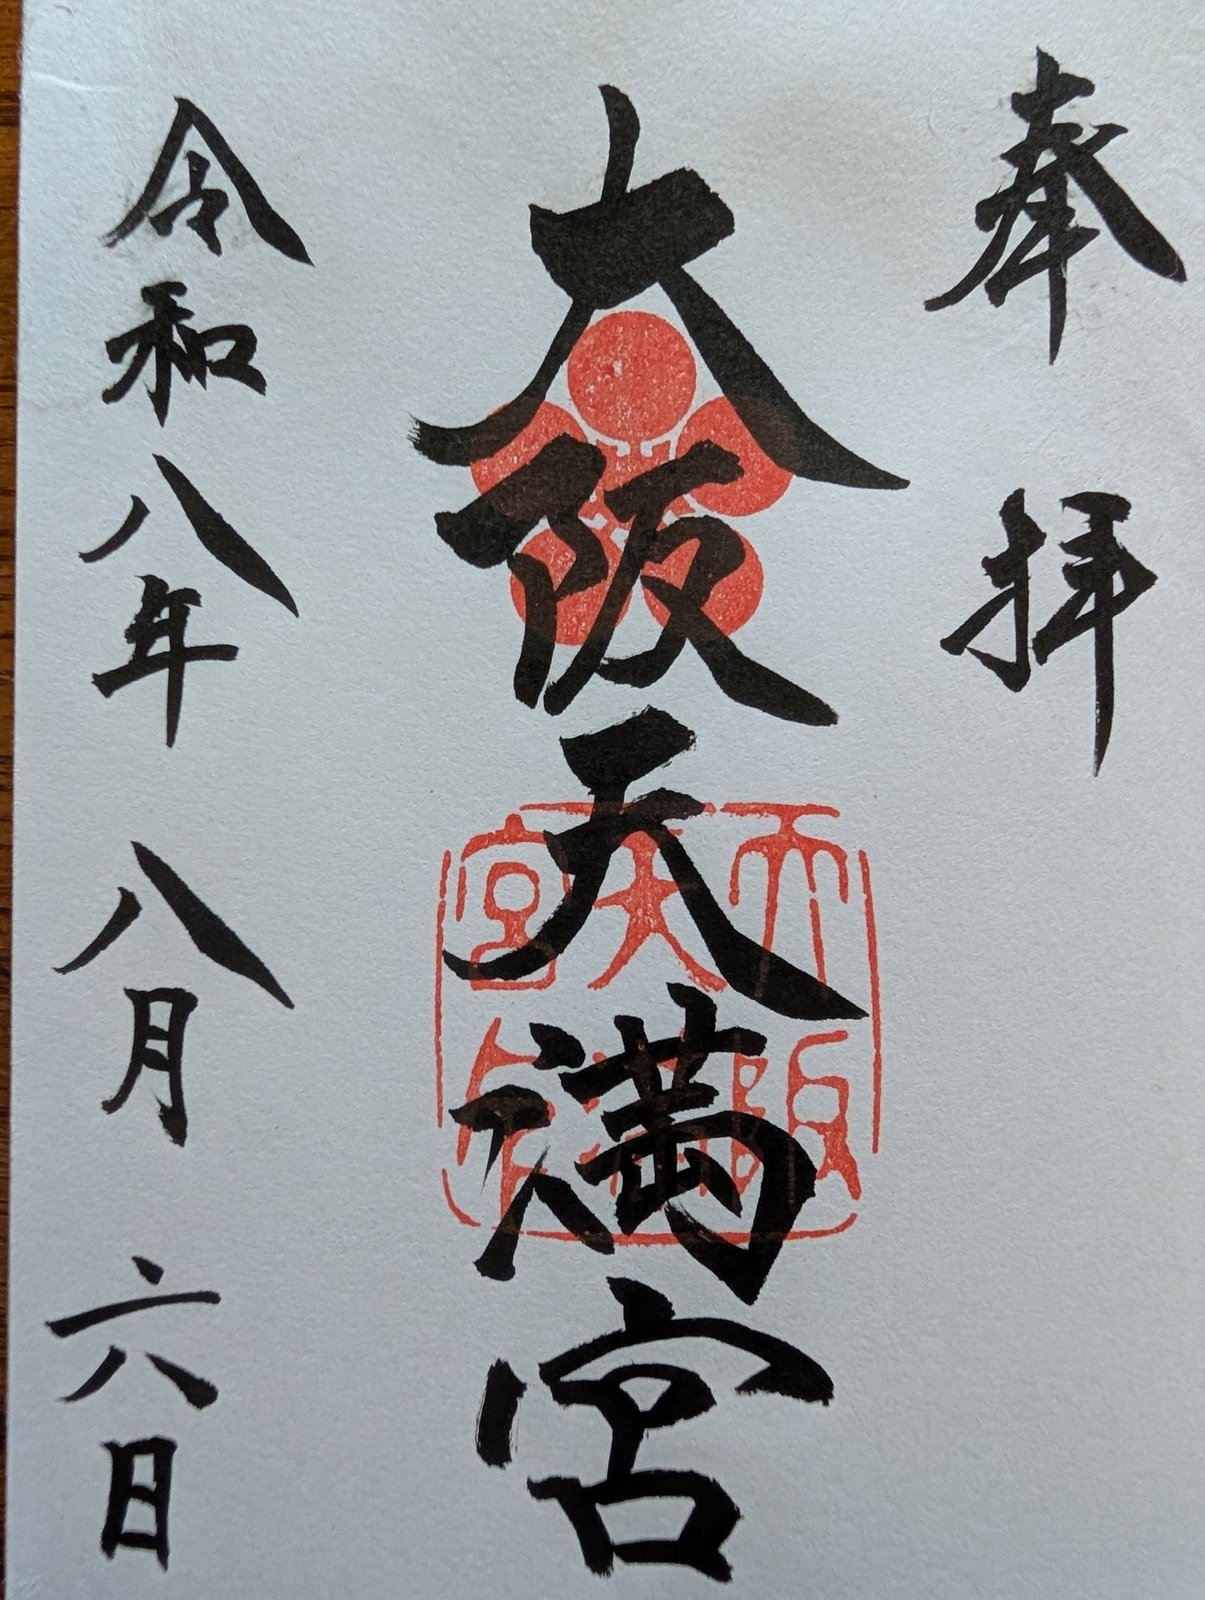 奉拝
大阪天満宮
令和八年八月六日
大阪
天満
宮印